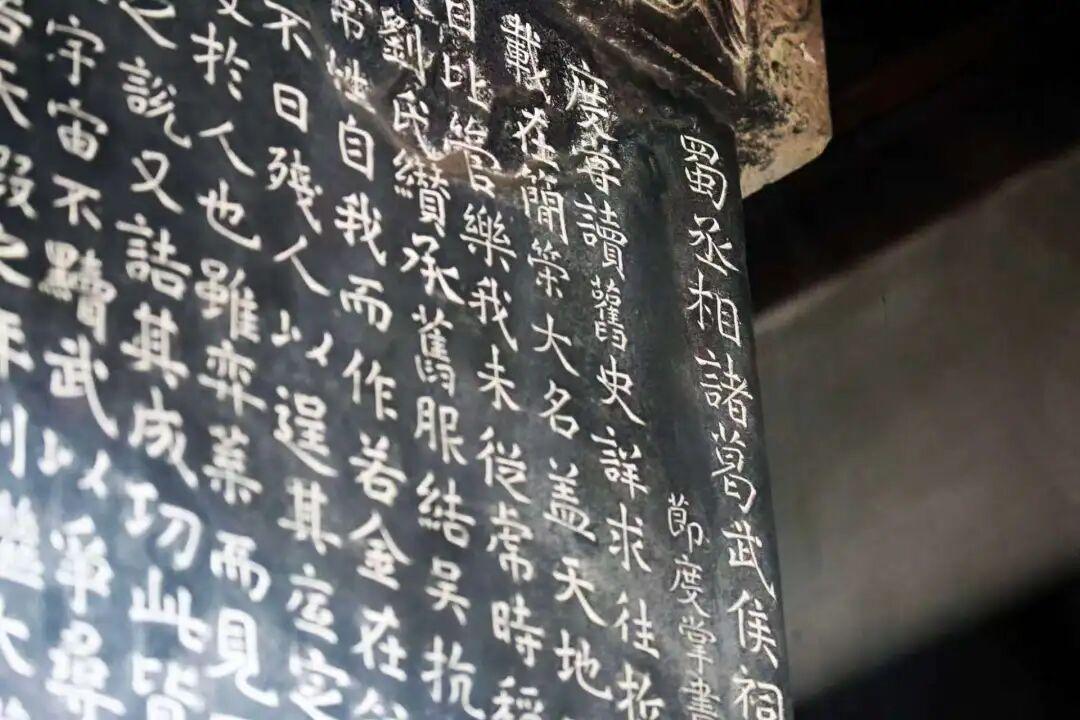 蜀丞相諸葛武侯祠
節度掌書
度嘗讀舊史詳求往哲
載在簡策大名蓋天地
自比管樂我未從虛時稱
劉氏纘承舊服結吳抗
常性自我而作若金在
不曰殘人以逞其
於人也雖弈葉而見
之說又詰其成功此皆
宇宙不黷武以爭尋
天假之年則繼大